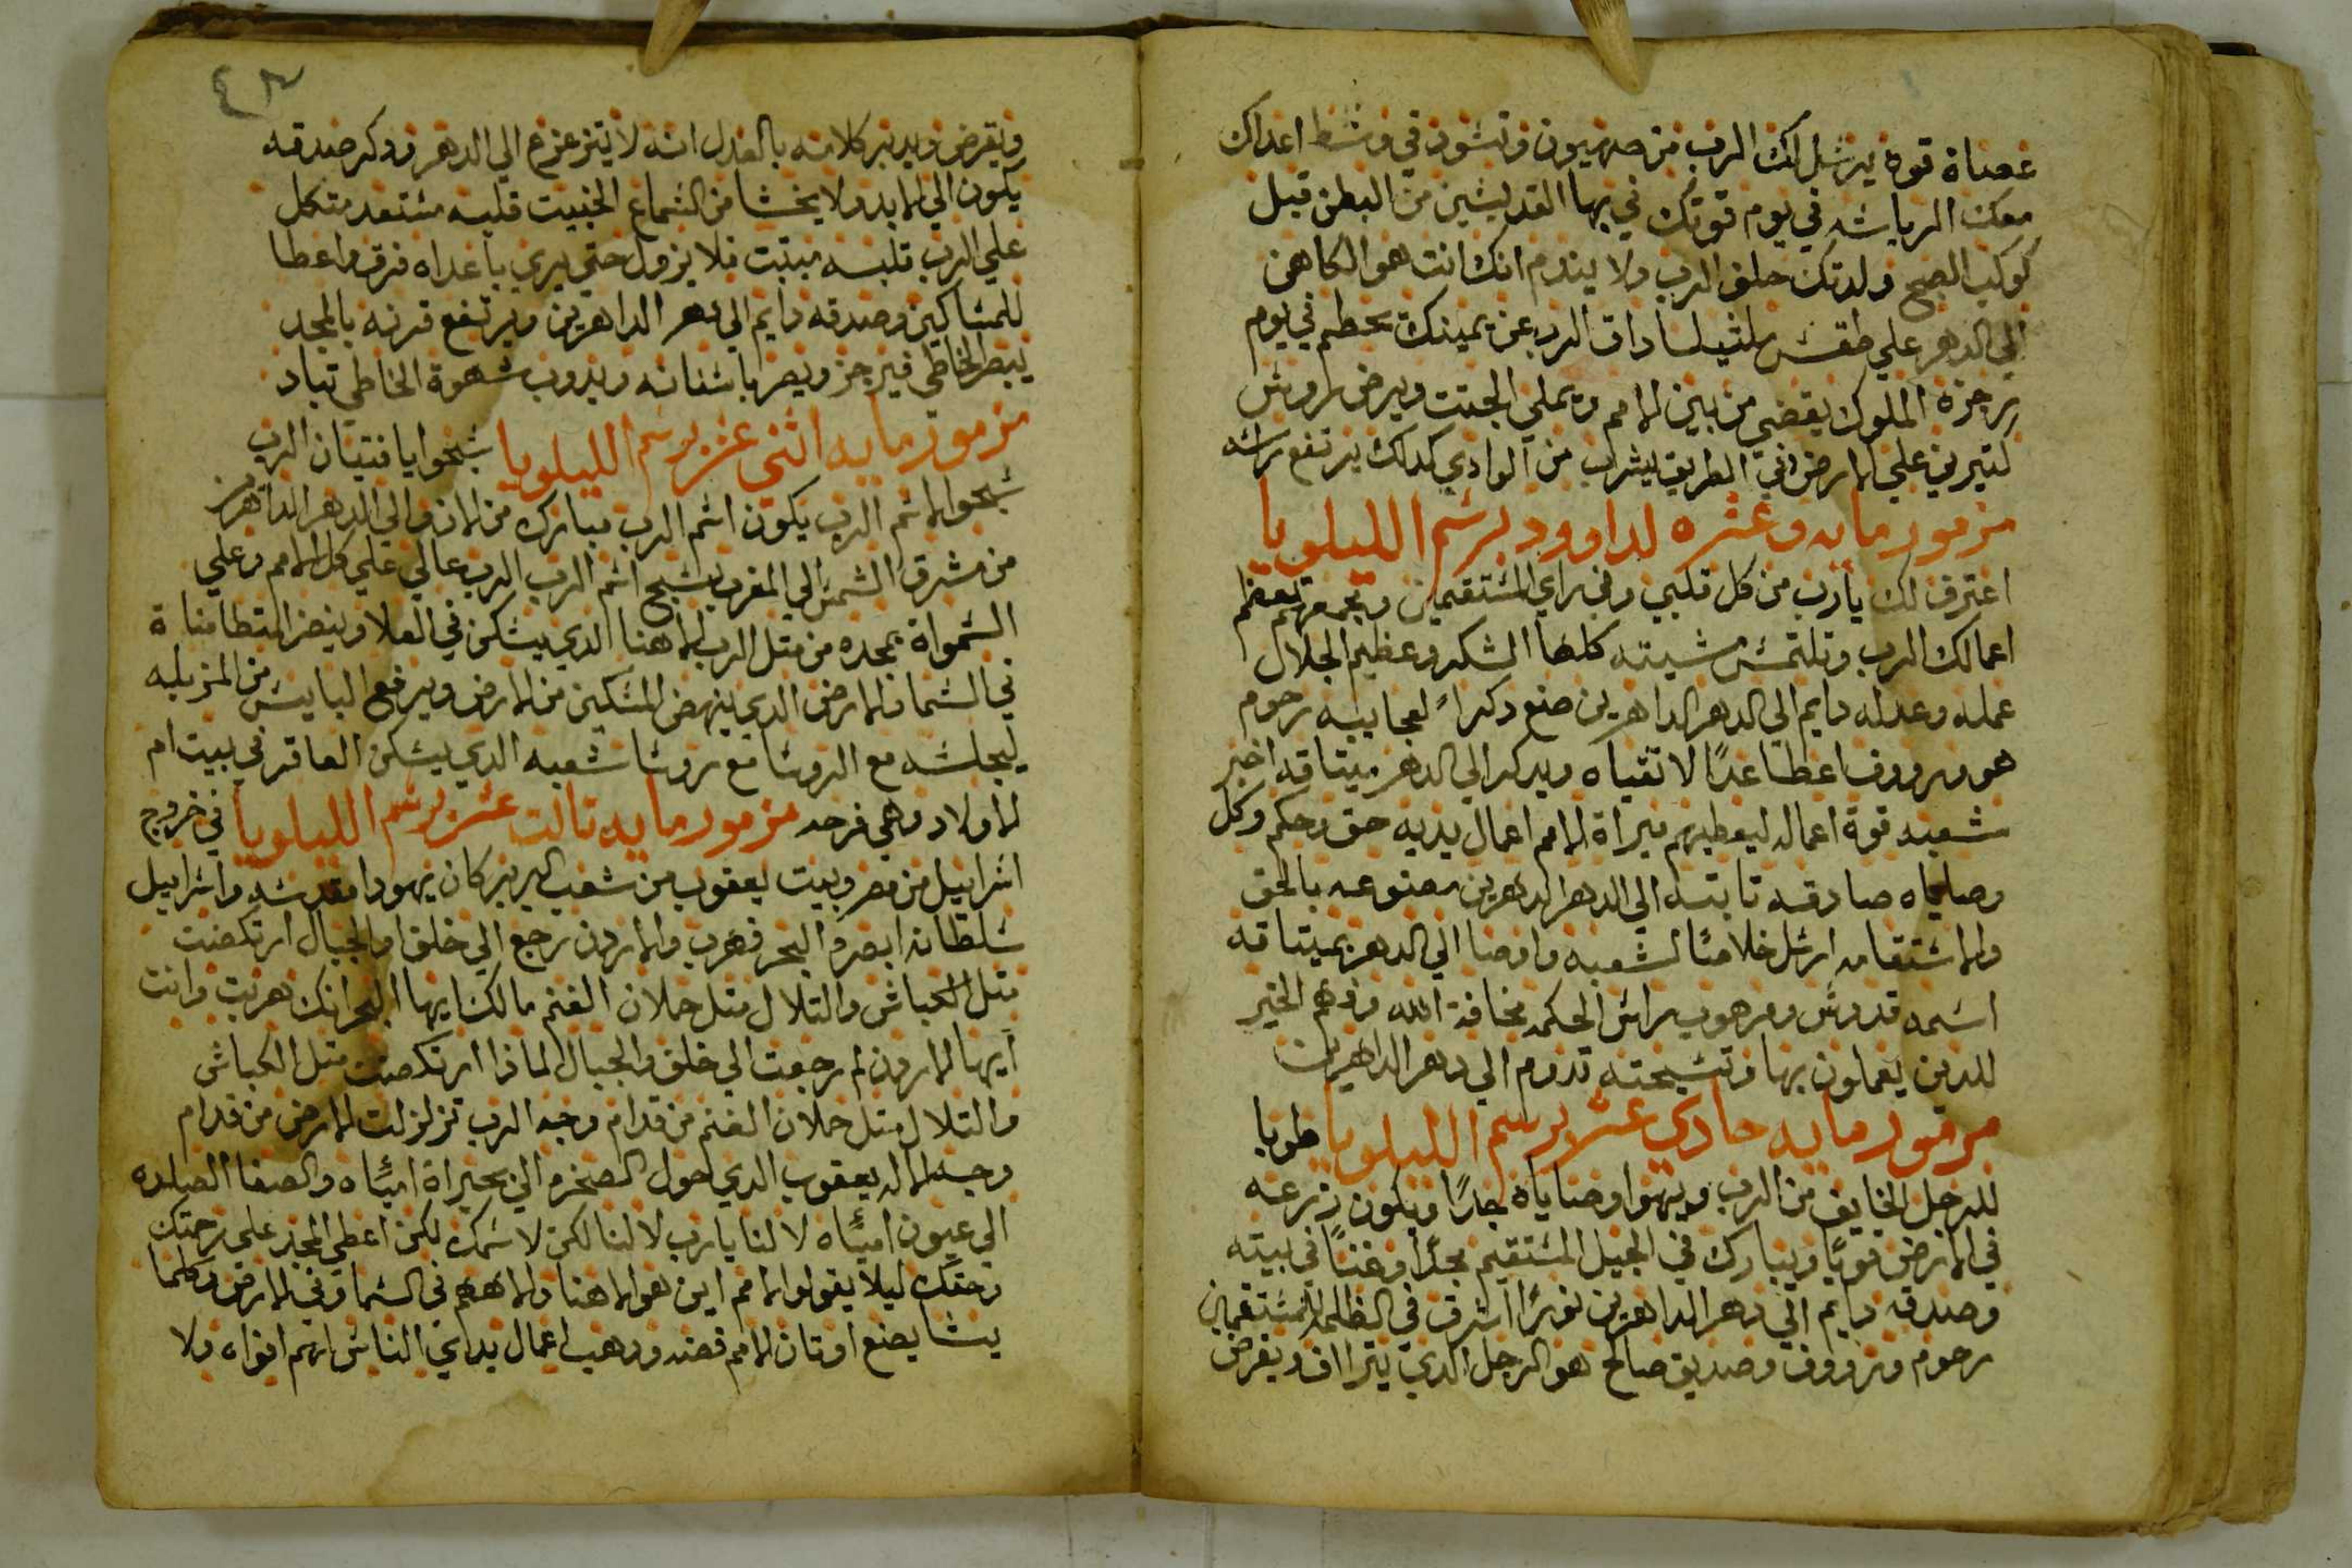 عصاة قوة يرسل لك الرب من صهيون وتسود في وسط اعداك
معك الرياسه في يوم قوتك في بها القديسين من البطن قبل
كوكب الصبح ولدتك حلف الرب ولا يندم انك انت هو الكاهن
الي الدهر علي طقس ملشيساداق الرب عن يمينك يحطم في يوم
رجزه الملوك يقضي من بين الامم ويملي الجتت ويرض اروس
كتيرين علي الارض في الطريق يشرب من الوادي كداك يرتفع راسه
مزمور مايه وعشره لداوود برسم الليلويا
اعترف لك يارب من كل قلبي وفي راي المستقيمين ومجمعهم تعظم
اعمالك الرب وتلتمس مشيته كلها الشكر وعظيم الجلال
عمله وعدله دايم الي الدهر الداهرين صنع دكراً لعجايبه رحوم
هو وروف اعطا غدًا لاتقياه ويدكر الي الدهر ميتاقه اخبر
شعبه قوة اعماله ليعطيهم ميراة الامم اعمال يديه حق وحكم وكل
وصاياه صادقه تابته الي الدهر الدهرين مصنوعه بالحق
والاستقامه ارسل خلاصًا لشعبه واوصا الي الدهر بميتاقه
اسمه قدوس ومرهوب راس الحكمه مخافة الله وفهم الخير
للدين يعملون بها وتسبحته تدوم الي دهر الداهرين
مزمور مايه حادي عشر برسم الليلويا طوبا
للرجل الخايف من الرب ويهوا وصاياه جدًا ويكون زرعه
في الارض قويًا ويبارك في الجيل المستقيم مجدًا وغنًا في بيته
وصدقه دايم الي دهر الداهرين نورًا اشرق في الظلمه للمستقيمين
رحوم وروف وصديق صالح هو الرجل الدي يتراف ويقرض
٤٣
ويقرض ويدبر كلامه بالعدل انه لا يتزعزع الي الدهر ودكر صدقه
يكون الي الابد ولا يخشا من السماع الخبيت قلبه مستعد متكل
علي الرب قلبه مبتبت فلا يزول حتي يري باعداه فرق واعطا
للمساكين وصدقه دايم الي دهر الداهرين ويرتفع قرنه بالمجد
يبصر الخاطي فيرجز ويصر باسنانه ويدوب شهوة الخاطي تباد
مزمور مايه اثني عشر برسم الليلويا سبحوا يا فتيان الرب
سبحوا لاسم الرب يكون اسم الرب مبارك من الان والي الدهر الداهرين
من مشرق الشمس الي المغرب يسبح اسم الرب الرب عالي علي كل الامم وعلي
السمواة مجده من متل الرب الاهنا الدي يسكن في العلا وينضر المتطامناة
في السما والارض الدي ينهض المسكين من الارض ويرفع البايس من المزبله
ليجلسه مع الروسا مع روسا شعبه الدي يسكن العاقر في بيت ام
الاولاد وهي فرحه مزمور مايه تالت عشر برسم الليلويا في خروج
اسراييل من مصر وبيت يعقوب من شعب البربر كان يهودا مقدسه واسراييل
سلطانه ابصره البحر فهرب والاردن رجع الي خلف والجبال ارتكضت
متل الكباش والتلال متل حملان الغنم مالك ايها البحر انك هربت وانت
ايها الاردن لم رجعت الي خلف والجبال لماذا ارتكضت متل الكباش
والتلال متل حملان الغنم من قدام وجه الرب تزلزلت الارض من قدام
وجه الاله يعقوب الدي احول الصخره الي بحيراة امياه والصفا الصلده
الي عيون امياه لا لنا يارب لا لنا لكن لاسمك لكن اعطي المجد علي رحمتك
وحقك ليلا يقولوا الامم اين هو الاهنا والاههم في السما وفي الارض وكلما
يشا يصنع اوتان الامم فضه ودهب اعمال يداي الناس لهم افواه ولا